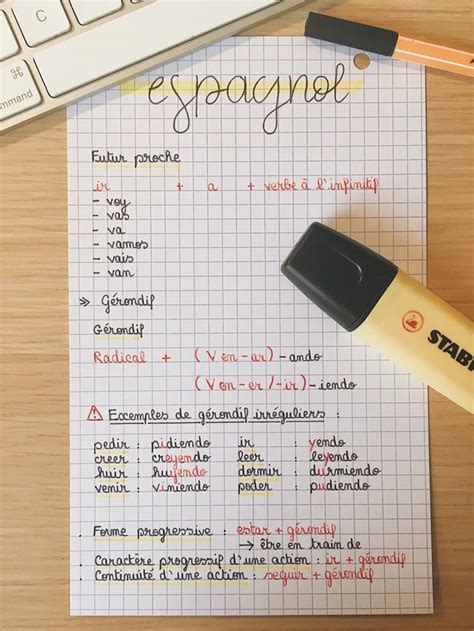 ⌘
command
espagnol
Futur proche
ir + a + verbe à l'infinitif
- voy
- vas
- va
- vamos
- vais
- van
» Gérondif
Gérondif
Radical + (V en -ar) - ando
(V en -er / -ir) - iendo
⚠ Exemples de gérondif irréguliers :
pedir : pidiendo ir : yendo
creer : creyendo leer : leyendo
huir : huyendo dormir : durmiendo
venir : viniendo poder : pudiendo
. Forme progressive : estar + gérondif
→ être en train de
. Caractère progressif d'une action : ir + gérondif
. Continuité d'une action : seguir + gérondif
STAB